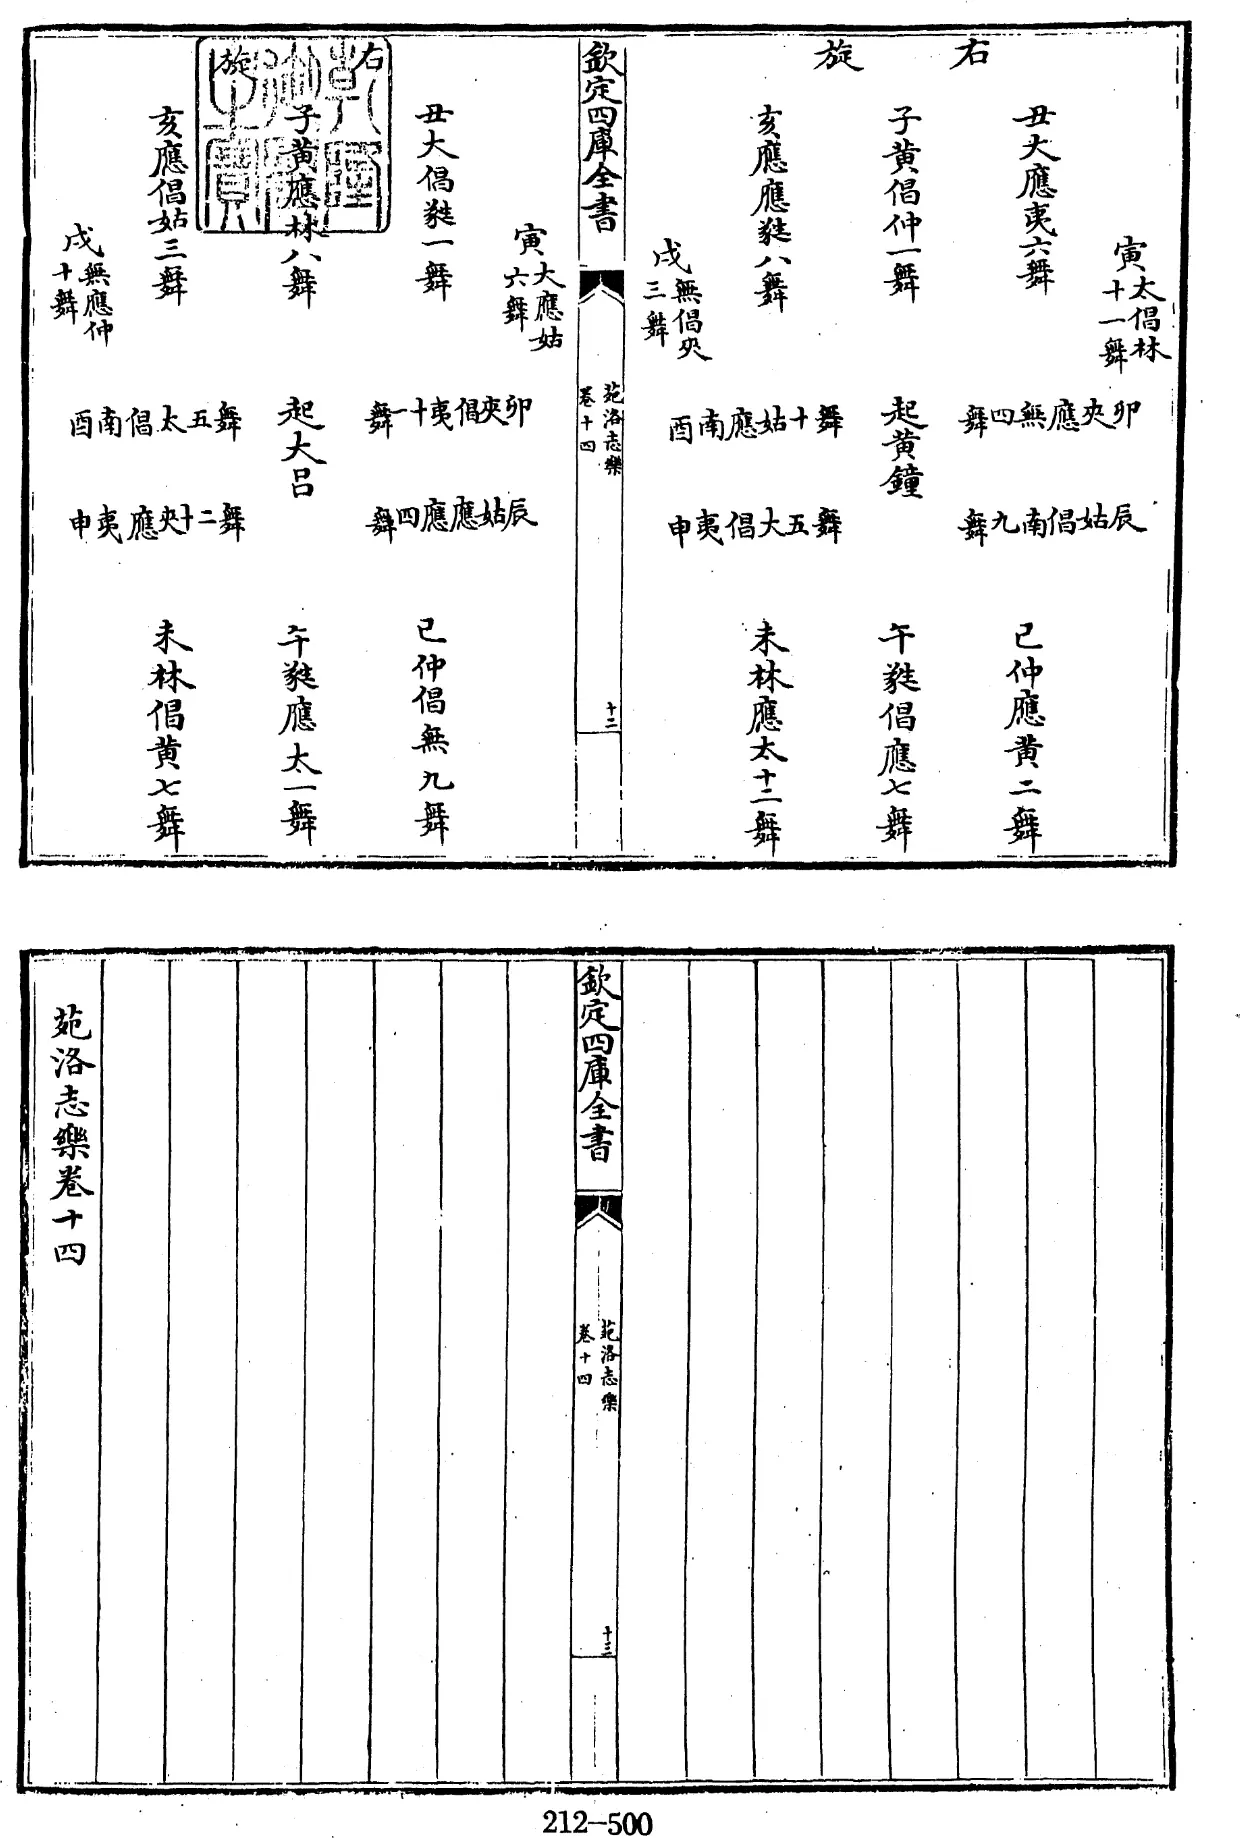 右旋
寅太倡林十一舞
丑大應夷六舞
子黄倡仲一舞
亥應應蕤八舞
戌無倡夾三舞
卯夾應無四舞
起黄鐘
酉南應姑十舞
辰姑倡南九舞
申夷倡大五舞
巳仲應黄二舞
午蕤倡應七舞
未林應太十二舞
欽定四庫全書
苑洛志樂
卷十四
十二
右旋
寅大應姑六舞
丑大倡蕤一舞
子黄應林八舞
亥應倡姑三舞
戌無應仲十舞
卯夾倡夷十一舞
起大呂
酉南倡太五舞
辰姑應應四舞
申夷應夾十二舞
巳仲倡無九舞
午蕤應太一舞
未林倡黄七舞
欽定四庫全書
苑洛志樂
卷十四
十三
苑洛志樂卷十四
212-500